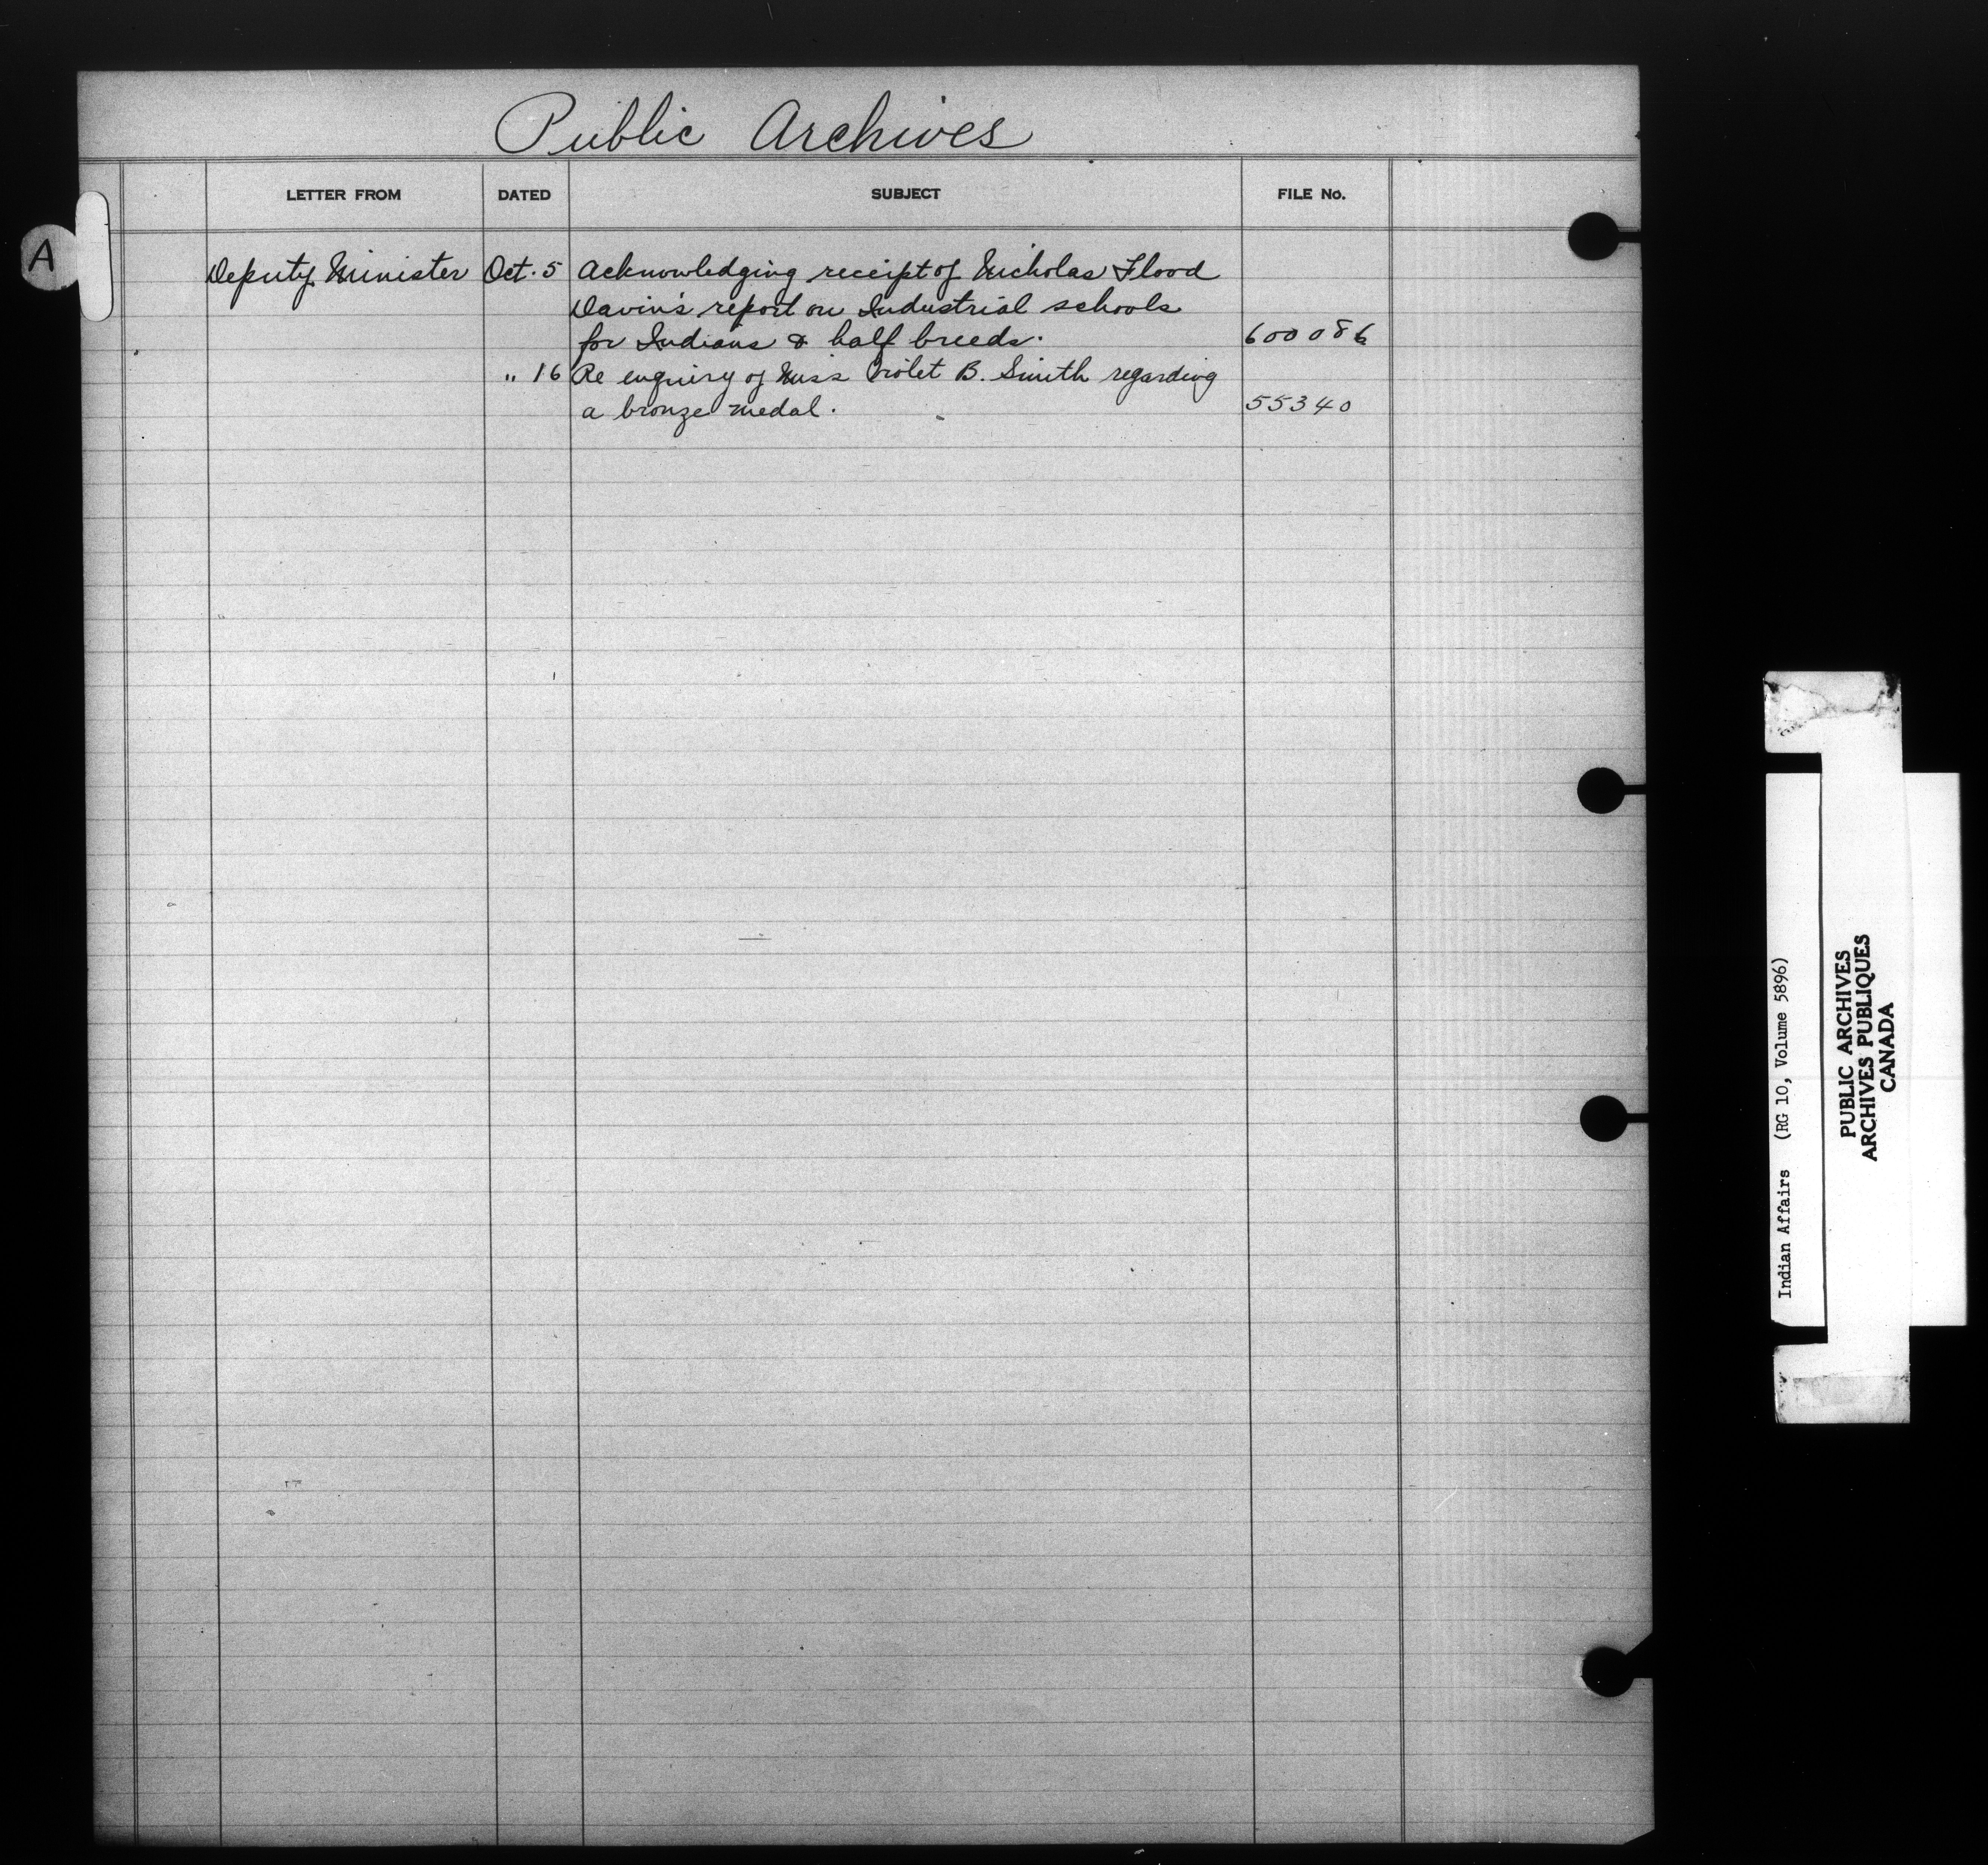 Public Archives
LETTER FROM DATED SUBJECT FILE No.
A
Deputy Minister Oct. 5 Acknowledging receipt of Nicholas Flood
Davin's report on Industrial schools
for Indians & half breeds. 600086
" 16 Re enquiry of Miss Violet B. Smith regarding
a bronze medal. 55340
Indian Affairs (RG 10, Volume 5896)
PUBLIC ARCHIVES
ARCHIVES PUBLIQUES
CANADA